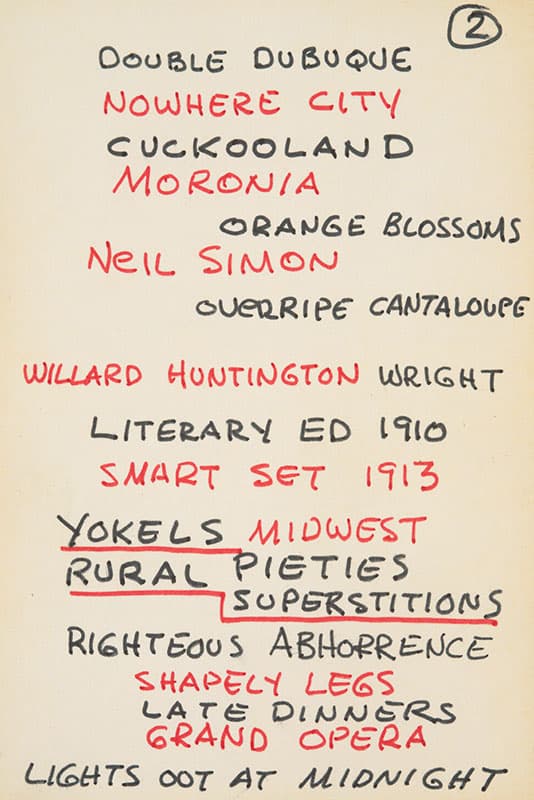 2
DOUBLE DUBUQUE
NOWHERE CITY
CUCKOOLAND
MORONIA
ORANGE BLOSSOMS
NEIL SIMON
OVERRIPE CANTALOUPE
WILLARD HUNTINGTON WRIGHT
LITERARY ED 1910
SMART SET 1913
YOKELS MIDWEST
RURAL PIETIES
SUPERSTITIONS
RIGHTEOUS ABHORRENCE
SHAPELY LEGS
LATE DINNERS
GRAND OPERA
LIGHTS OUT AT MIDNIGHT